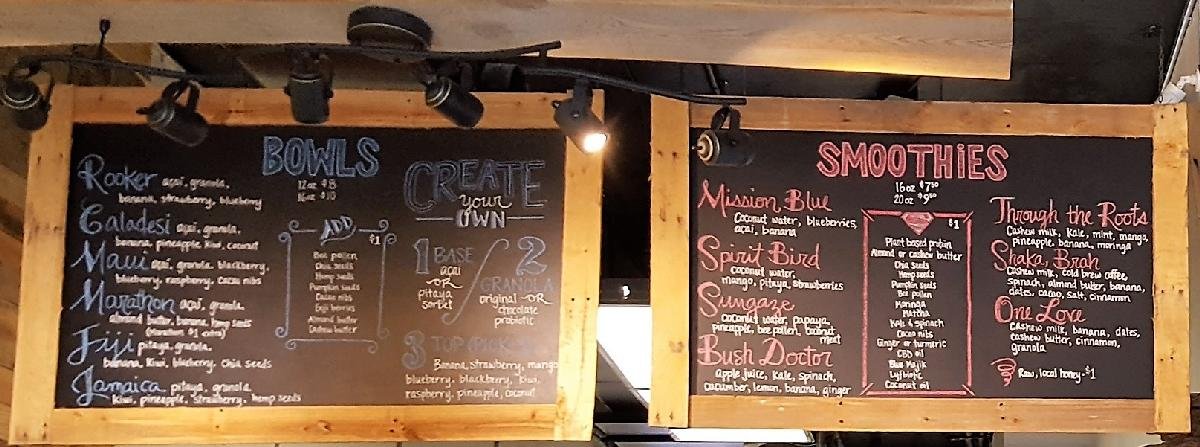 BOWLS
12oz $8
16oz $10
Rooker açaí, granola,
banana, strawberry, blueberry
Caladesi açaí, granola,
banana, pineapple, kiwi, coconut
Maui açaí, granola, blackberry,
blueberry, raspberry, cacao nibs
Marathon açaí, granola,
almond butter, banana, hemp seeds
(Marathon $1 extra)
Fiji pitaya, granola,
banana, kiwi, blueberry, chia seeds
Jamaica pitaya, granola,
kiwi, pineapple, strawberry, hemp seeds
ADD
$1
Bee pollen
Chia seeds
Hemp seeds
Pumpkin seeds
Cacao nibs
Goji berries
Almond butter
Cashew butter
CREATE
your
OWN
1 BASE
açaí
-OR-
pitaya
sorbet
2
GRANOLA
original -OR-
chocolate
probiotic
3 TOP
Banana, strawberry, mango
blueberry, blackberry, kiwi,
raspberry, pineapple, coconut
SMOOTHiES
16oz $750
20oz $950
Mission Blue
Coconut water, blueberries,
açai, banana
Spirit Bird
coconut water,
mango, pitaya, strawberries
Sungaze
coconut water, papaya,
pineapple, bee pollen, coconut
meat
Bush Doctor
apple juice, kale, spinach,
cucumber, lemon, banana, ginger
$1
Plant based protein
Almond or cashew butter
Chia seeds
Hemp seeds
Pumpkin seeds
Bee pollen
Moringa
Matcha
Kale & spinach
Cacao nibs
Ginger or turmeric
CBD oil
Blue Majik
Coconut oil
Through the Roots
Cashew milk, kale, mint, mango,
pineapple, banana, moringa
Shaka, Brah
Cashew milk, cold brew coffee,
spinach, almond butter, banana,
dates, cacao, salt, cinnamon
One Love
Cashew milk, banana, dates,
cashew butter, cinnamon,
granola
Raw, local honey-$1